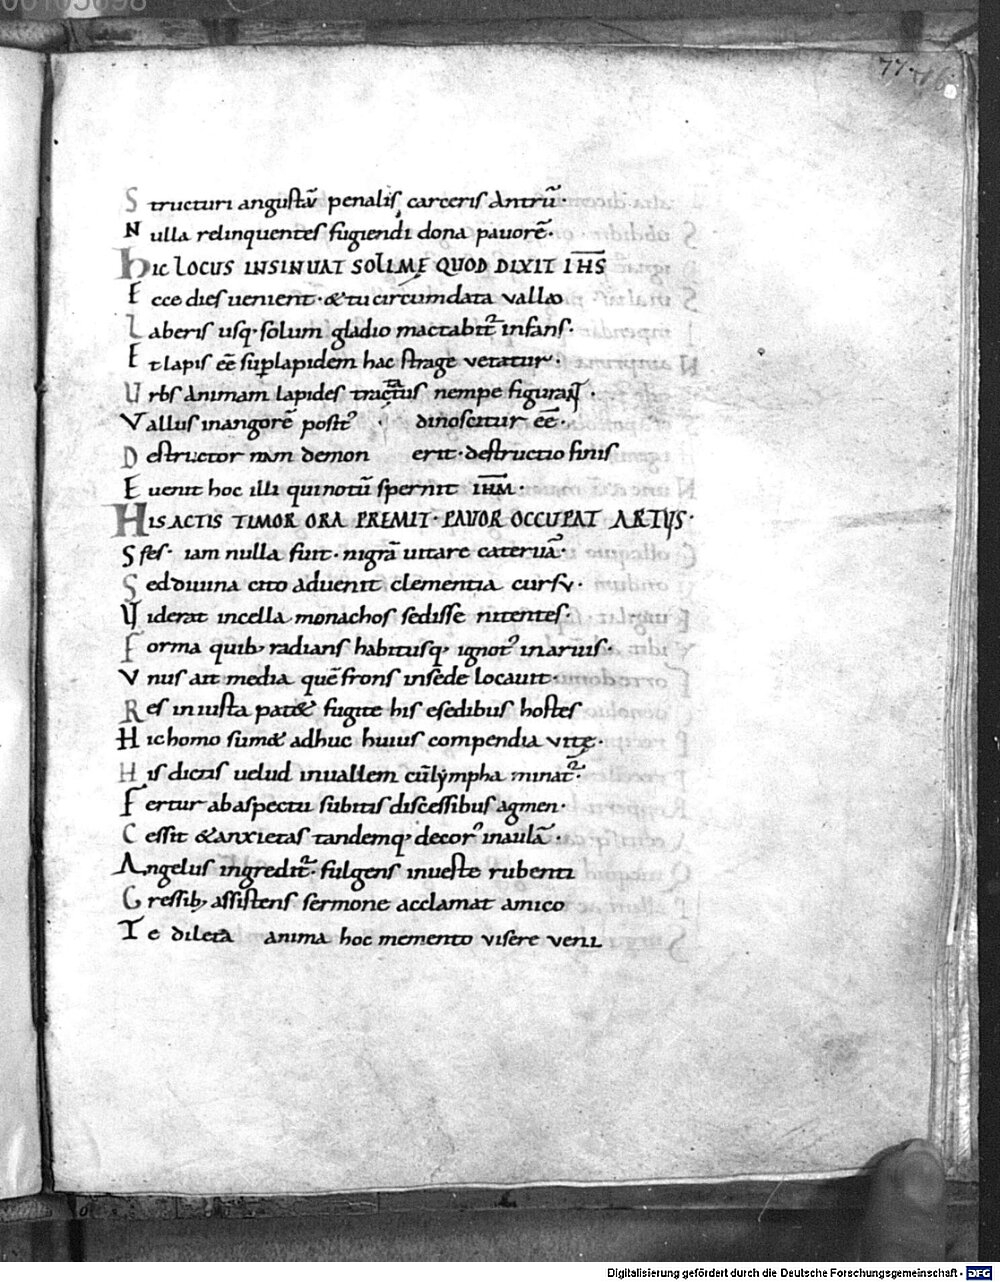 77
S tructuri angustū penalis carceris antrū·
N ulla relinquentes fugiendi dona pauorē·
H IC LOCUS INSINUAT SOLIME QUOD DIXIT IHS
E cce dies uenient· & tu circumdata uallo
L aberis usq· solum gladio mactabit᷑ infans·
E t lapis eē sup lapidem hac strage uetatur·
U rbs animam lapides tractatus nempe figurarꝝ·
V allus in angorē postꝰ dinoscitur eē·
D estructor nam demon erit· destructio finis
E uenit hoc illi qui notū spernit IHM·
H IS ACTIS TIMOR ORA PREMIT· PAVOR OCCUPAT ARTUS·
S pes· iam nulla fuit· nigrā uitare cateruā·
S ed diuina cito aduenit clementia cursu·
U iderat in cella monachos sedisse nitentes·
F orma quib; radians habitusq; ignotꝰ in aruis·
V nus ait media quē frons in sede locauit·
R es iniusta pat& fugite his ęsedibus hostes
H ic homo sum& adhuc huius compendia uitę·
H is dictis uelud in uallem cū lympha minat᷑·
F ertur ab aspectu subitis discessibus agmen·
C essit & anxietas tandemq; decorꝰ in aulā·
A ngelus ingredit᷑· fulgens in ueste rubenti
G ressib; assistens sermone acclamat amico
T e dilecta anima hoc memento uisere ueni
Digitalisierung gefördert durch die Deutsche Forschungsgemeinschaft - DFG